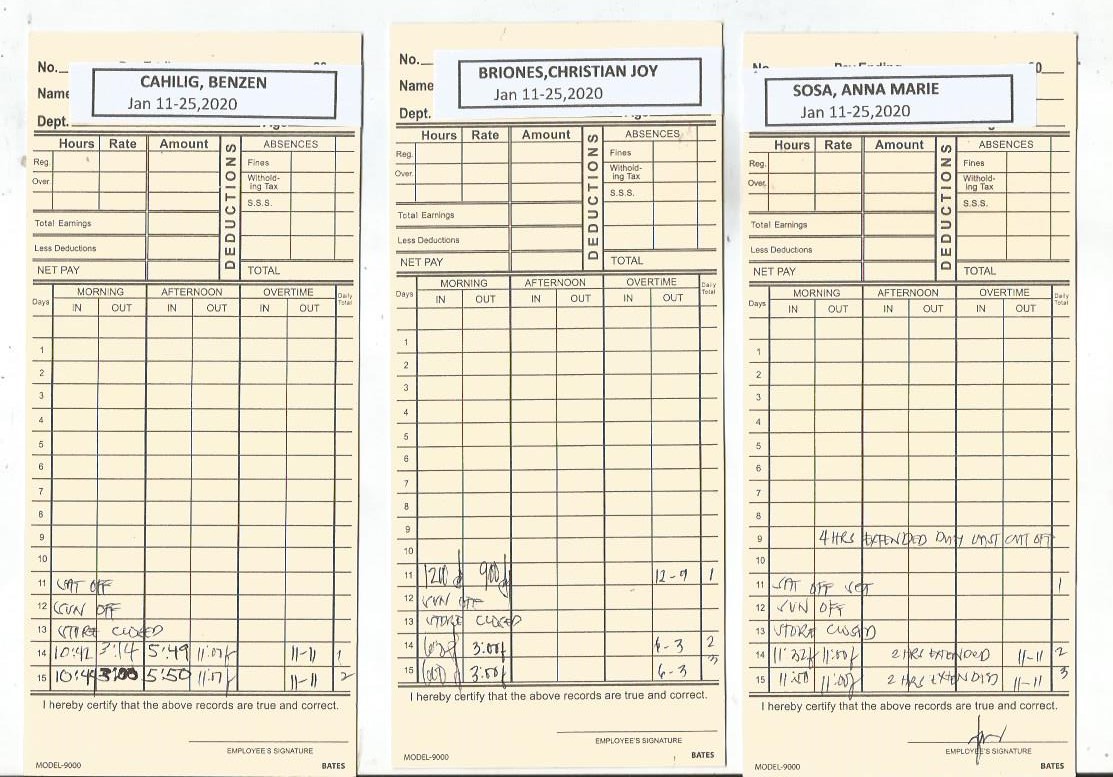 No.
CAHILIG, BENZEN
Name
Jan 11-25,2020
Dept.
Hours Rate Amount DEDUCTIONS ABSENCES
Reg. Fines
Over. Withold-
ing Tax
S.S.S.
Total Earnings
Less Deductions
NET PAY TOTAL
Days MORNING AFTERNOON OVERTIME Daily Total
IN OUT IN OUT IN OUT
1
2
3
4
5
6
7
8
9
10
11 SAT OFF
12 SUN OFF
13 STORE CLOSED
14 10:42 3:14 5:49 11:07 11-11 1
15 10:44 3:00 5:50 11:07 11-11 2
I hereby certify that the above records are true and correct.
EMPLOYEE'S SIGNATURE
MODEL-9000 BATES
No.
BRIONES,CHRISTIAN JOY
Name
Jan 11-25,2020
Dept.
Hours Rate Amount DEDUCTIONS ABSENCES
Reg. Fines
Over. Withold-
ing Tax
S.S.S.
Total Earnings
Less Deductions
NET PAY TOTAL
Days MORNING AFTERNOON OVERTIME Daily Total
IN OUT IN OUT IN OUT
1
2
3
4
5
6
7
8
9
10
11 1200 900 12-9 1
12 SUN OFF
13 STORE CLOSED
14 600 3:00 6-3 2
15 600 3:00 6-3 3
I hereby certify that the above records are true and correct.
EMPLOYEE'S SIGNATURE
MODEL-9000 BATES
No. Pay Ending 20
SOSA, ANNA MARIE
Jan 11-25,2020
Hours Rate Amount DEDUCTIONS ABSENCES
Reg. Fines
Over. Withold-
ing Tax
S.S.S.
Total Earnings
Less Deductions
NET PAY TOTAL
Days MORNING AFTERNOON OVERTIME Daily Total
IN OUT IN OUT IN OUT
1
2
3
4
5
6
7
8
9 4 HRS EXTENDED DUTY LAST CUT OFF
10
11 SAT OFF SET 1
12 SUN OFF
13 STORE CLOSED
14 11:22 11:00 2 HRS EXTENDED 11-11 2
15 11:00 11:00 2 HRS EXTENDED 11-11 3
I hereby certify that the above records are true and correct.
EMPLOYEE'S SIGNATURE
MODEL-9000 BATES